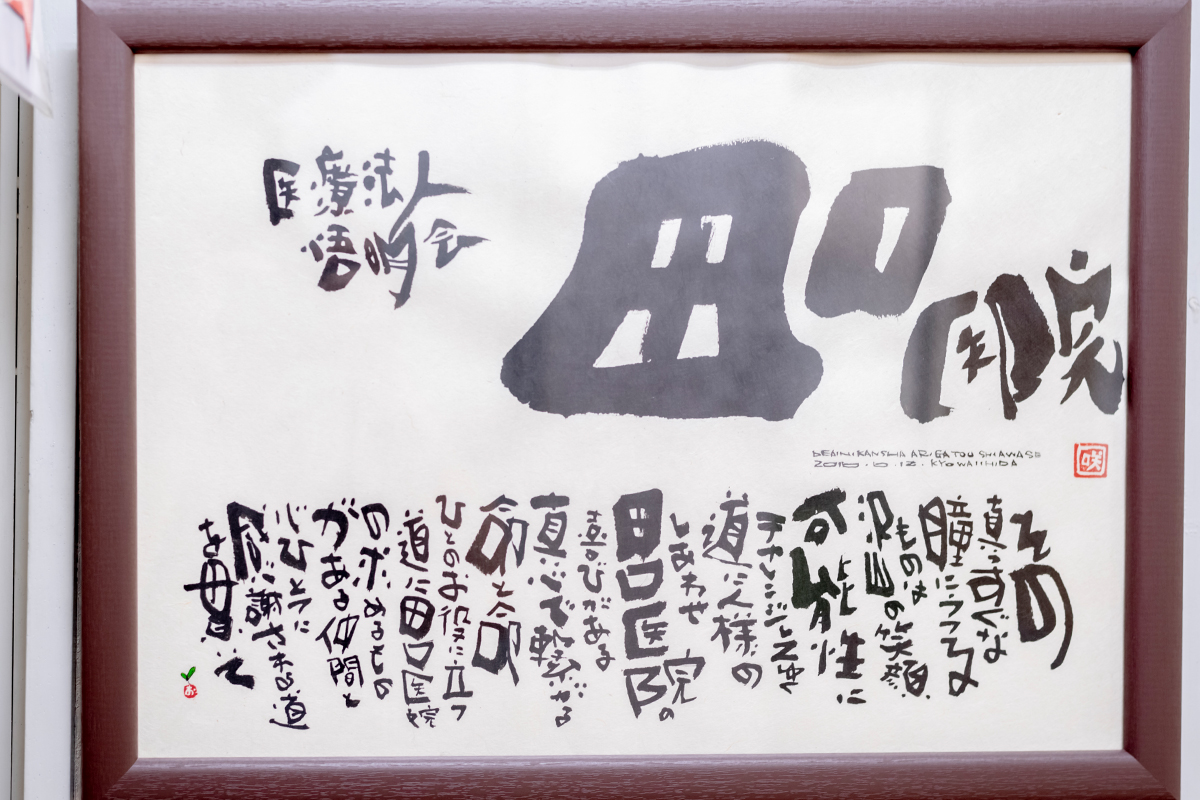 医療法人
悟明会
田口
医院
DEAI KANSHA ARIGATOU SHIAWASE
咲
その
真っすぐな
瞳にうつる
ものは
沢山の笑顔
可能性に
チャレンジしてゆく
道に人様の
しあわせ
田口医院の
喜びがある
真心で繋がる
命と命
ひとのお役に立つ
道に田口医院
の求めるもの
がある仲間と
心ひとつに
感謝される道